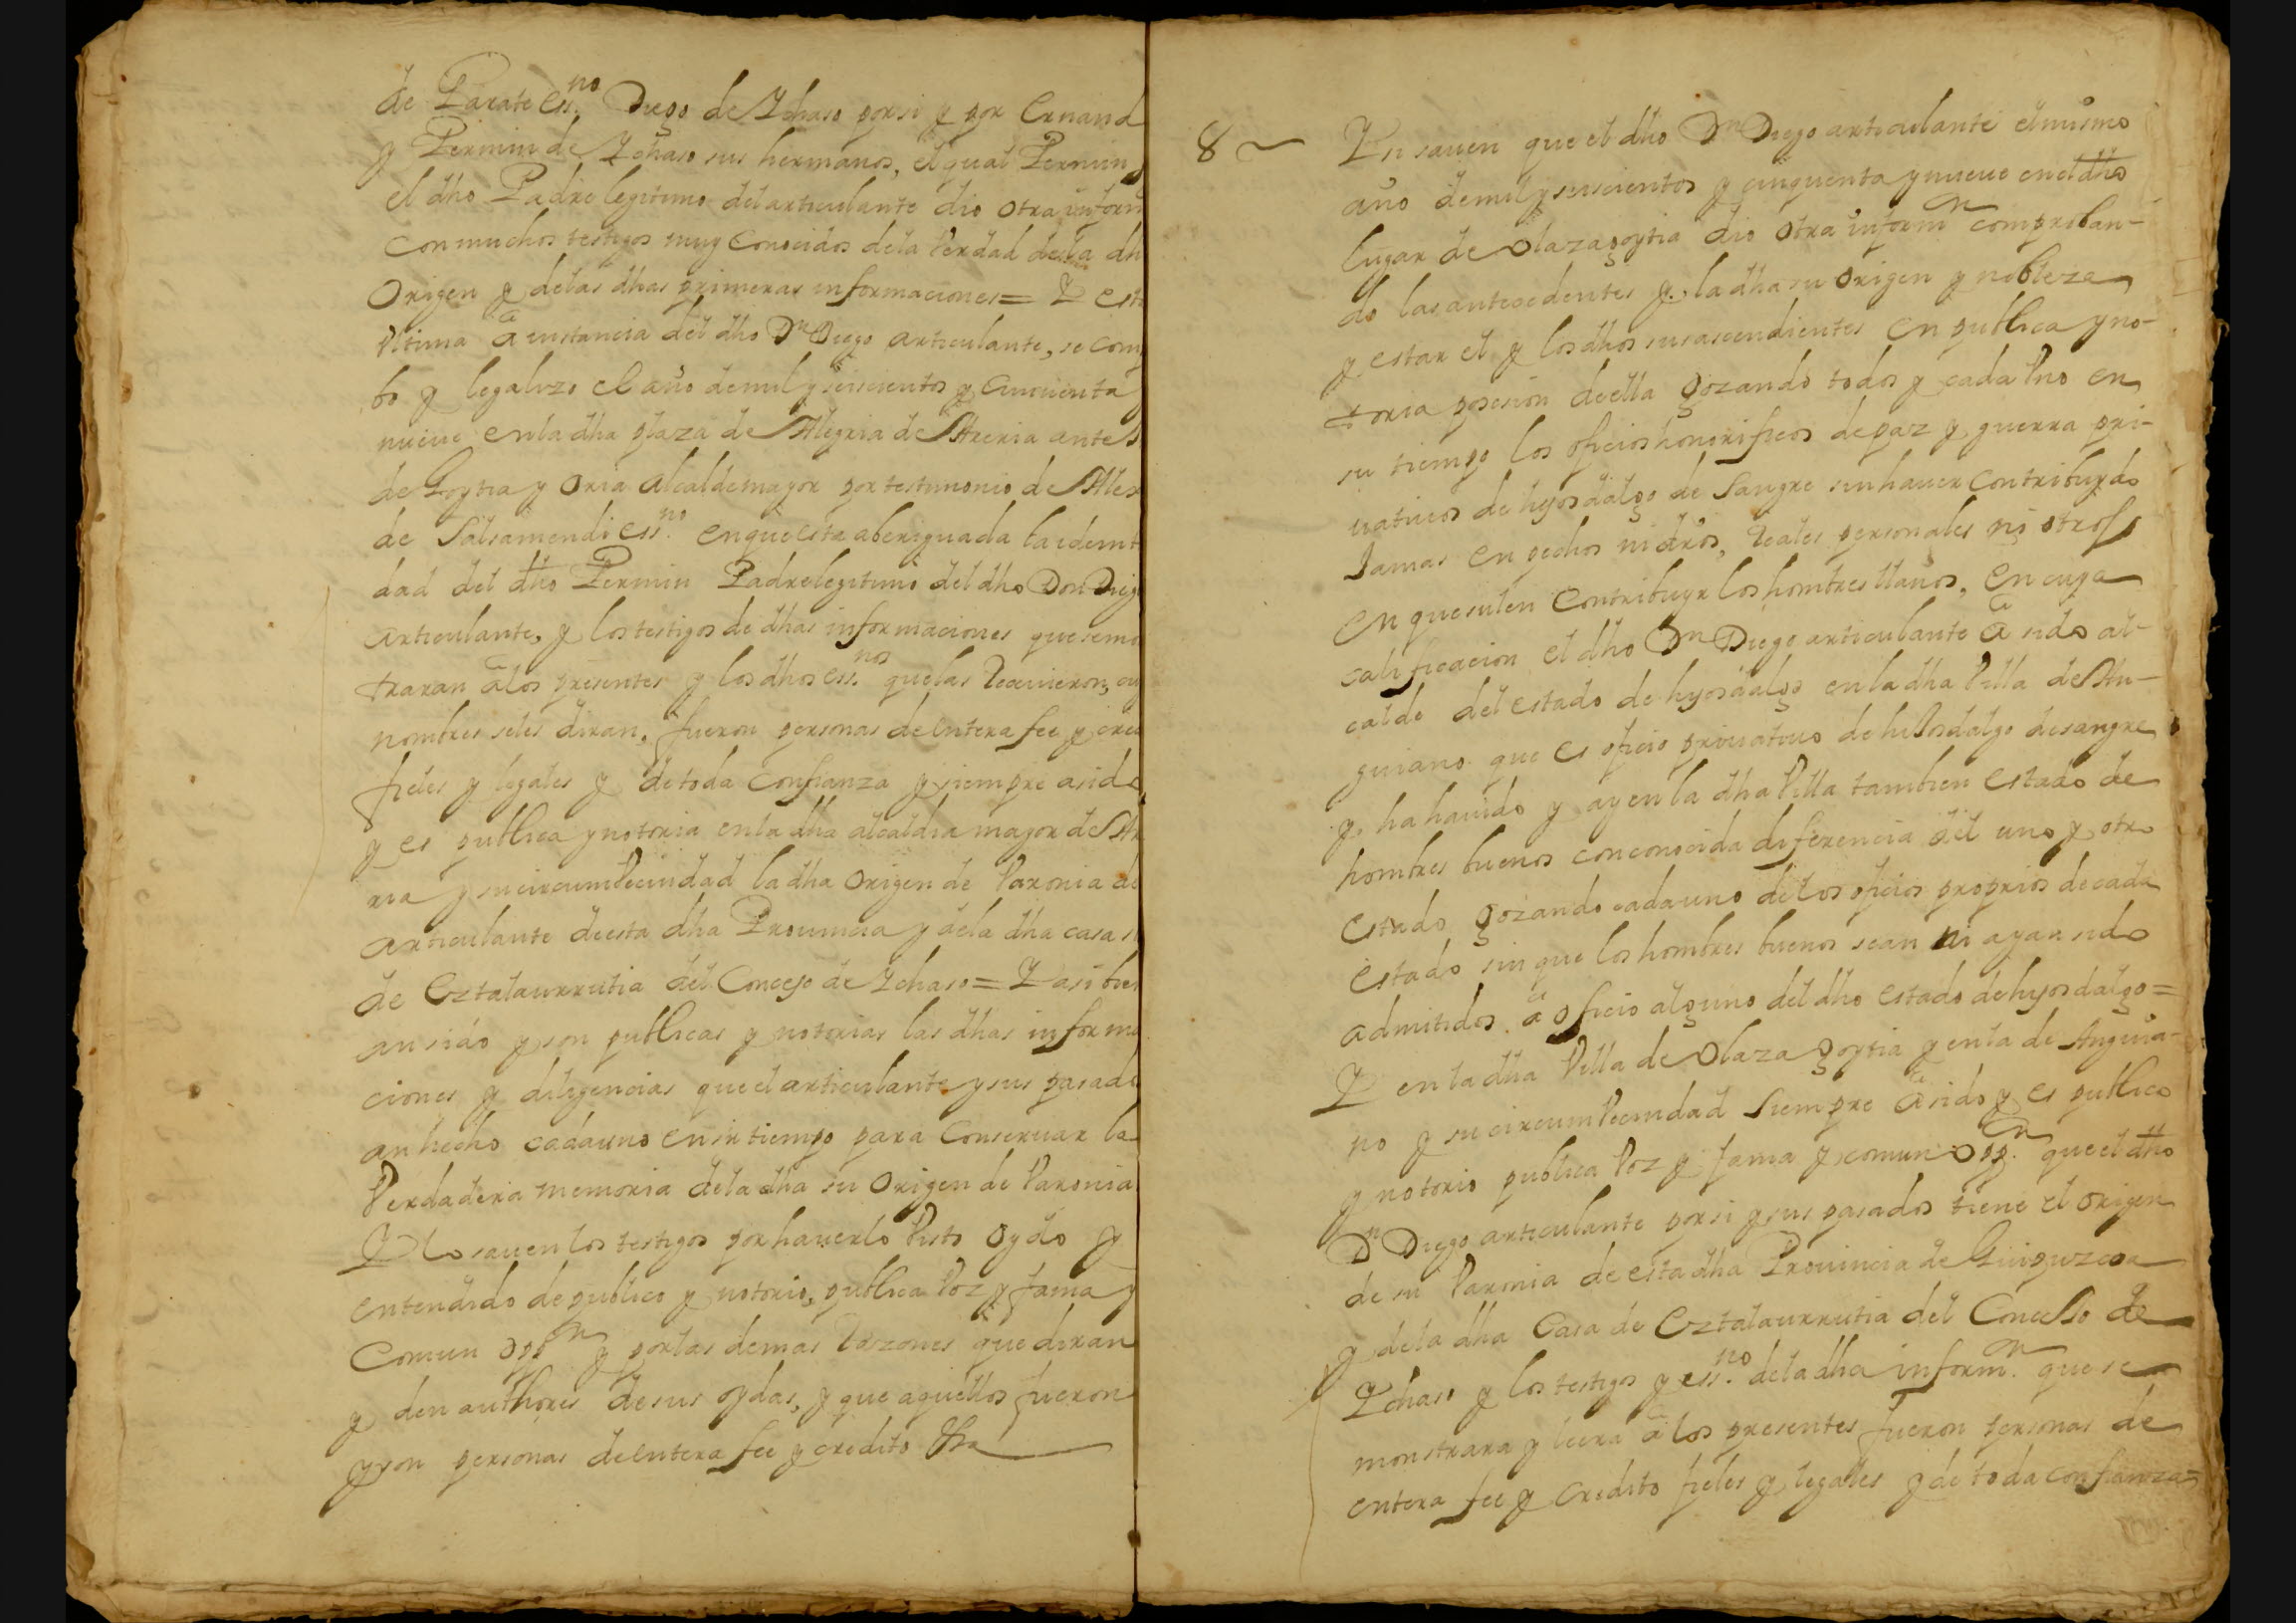 de Parate ess.no Diego de Ychaso por si y por Ernand
y Permin de Ychaso sus hermanos, el qual Permin
el dho Padre legitimo del articulante dio otra inform
con muchos testigos muy conocidos dela Verdad della dh
Origen y delas dhas primeras informaciones = Y est
Vltima â instancia del dho Dn Diego articulante, se com
bo y legalizo el año de mil y seiscientos y cinquenta
nueue en la dha plaza de Alegria de Areria ante
de Goytia y Oria Alcalde mayor por testimonio de Alex
de Salsamendi ess.no en que esta aberiguada la idemt
dad del dho Permin Padre legitimo del dho Don Dieg
articulante, y los testigos de dhas informaciones que se mo
traran â los presentes y los dhos ess.nos que las Reciuieron, cu
nombres seles diran, fueron personas de entera fee y cred
fieles y legales y de toda confianza y siempre a sido
y es publica y notoria en la dha alcaldia mayor de Ar
ria y su circumVecindad la dha Origen de Varonia de
articulante de esta dha Prouincia y de la dha casa
de Eztalaurrutia del Concejo de Ychaso = Y asi bien
an sido y son publicas y notorias las dhas informa
ciones y diligencias que el articulante y sus pasado
an hecho cada uno en su tiempo para conseruar la
Verdadera memoria dela dha su Origen de Varonia
Y lo sauen los testigos por hauerlo Visto oydo y
entendido de publico y notorio, publica Voz y fama y
Comun opp.n y por las demas Razones que diran
y den authores de sus oydas, y que aquellos fueron
y son personas de entera fee y credito &a
8 ~ Y si sauen que el dho Dn Diego articulante el mismo
año de mil y seiscientos y cinquenta y nueue en el dho
lugar de Olazagoytia dio otra inform.n comproban-
do las antecedentes y la dha su Origen y nobleza
y estar el y los dhos sus ascendientes en publica y no-
toria posesion de ella gozando todos y cada Vno en
su tiempo los oficios honorificos de paz y guerra pri-
uatiuos de hijosdalgo de Sangre sin hauer contribuydo
Jamas en pechos ni dros, Reales personales ni otros
en que suelen contribuyr los hombres llanos, en cuya
calificacion el dho Dn Diego articulante â sido al-
calde del estado de hijosdalgo en la dha Villa de An-
guiano que es oficio priuatiuo de hiJosdalgo de sangre
y ha hauido y ay en la dha Villa tambien estado de
hombres buenos con conocida diferencia del uno y otro
estado gozando cada uno de los oficios proprios de cada
estado sin que los hombres buenos sean ni ayan sido
admitidos â oficio alguno del dho estado de hijosdalgo =
Y en la dha Villa de Olazagoytia y en la de Anguia-
no y su circumVecindad siempre â sido y es publico
y notorio publica Voz y fama y comun opp.n que el dho
Dn Diego articulante por si y sus pasados tiene el origen
de su Varonia de esta dha Prouincia de Guipuzcoa
y de la dha Casa de Eztalaurrutia del Concesso de
Ychaso y los testigos y ess.no dela dha inform.n que se
monstrara y leera â los presentes fueron personas de
entera fee y credito fieles y legales y de toda confianza =